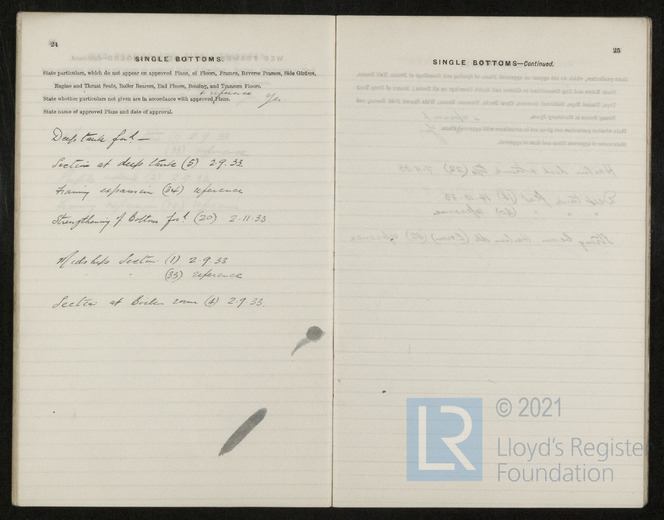 24
SINGLE BOTTOMS.
State particulars, which do not appear on approved Plans, of Floors, Frames, Reverse Frames, Side Girders,
Engine and Thrust Seats, Boiler Bearers, End Floors, Bossing, and Tunnel Floors.
& reference
State whether particulars not given are in accordance with approved Plans. Yes
State name of approved Plans and date of approval.
Deep tank for'd —
Section at deep tank (5) 2.9.33.
Framing expansion (34) reference
Strengthening of Bottom for'd (20) 2.11.33
Midships Section (1) 2.9.33
" (33) reference
Section at Boiler room (4) 2.9.33.
25
SINGLE BOTTOMS—Continued.
LR
© 2021
Lloyd's Register
Foundation